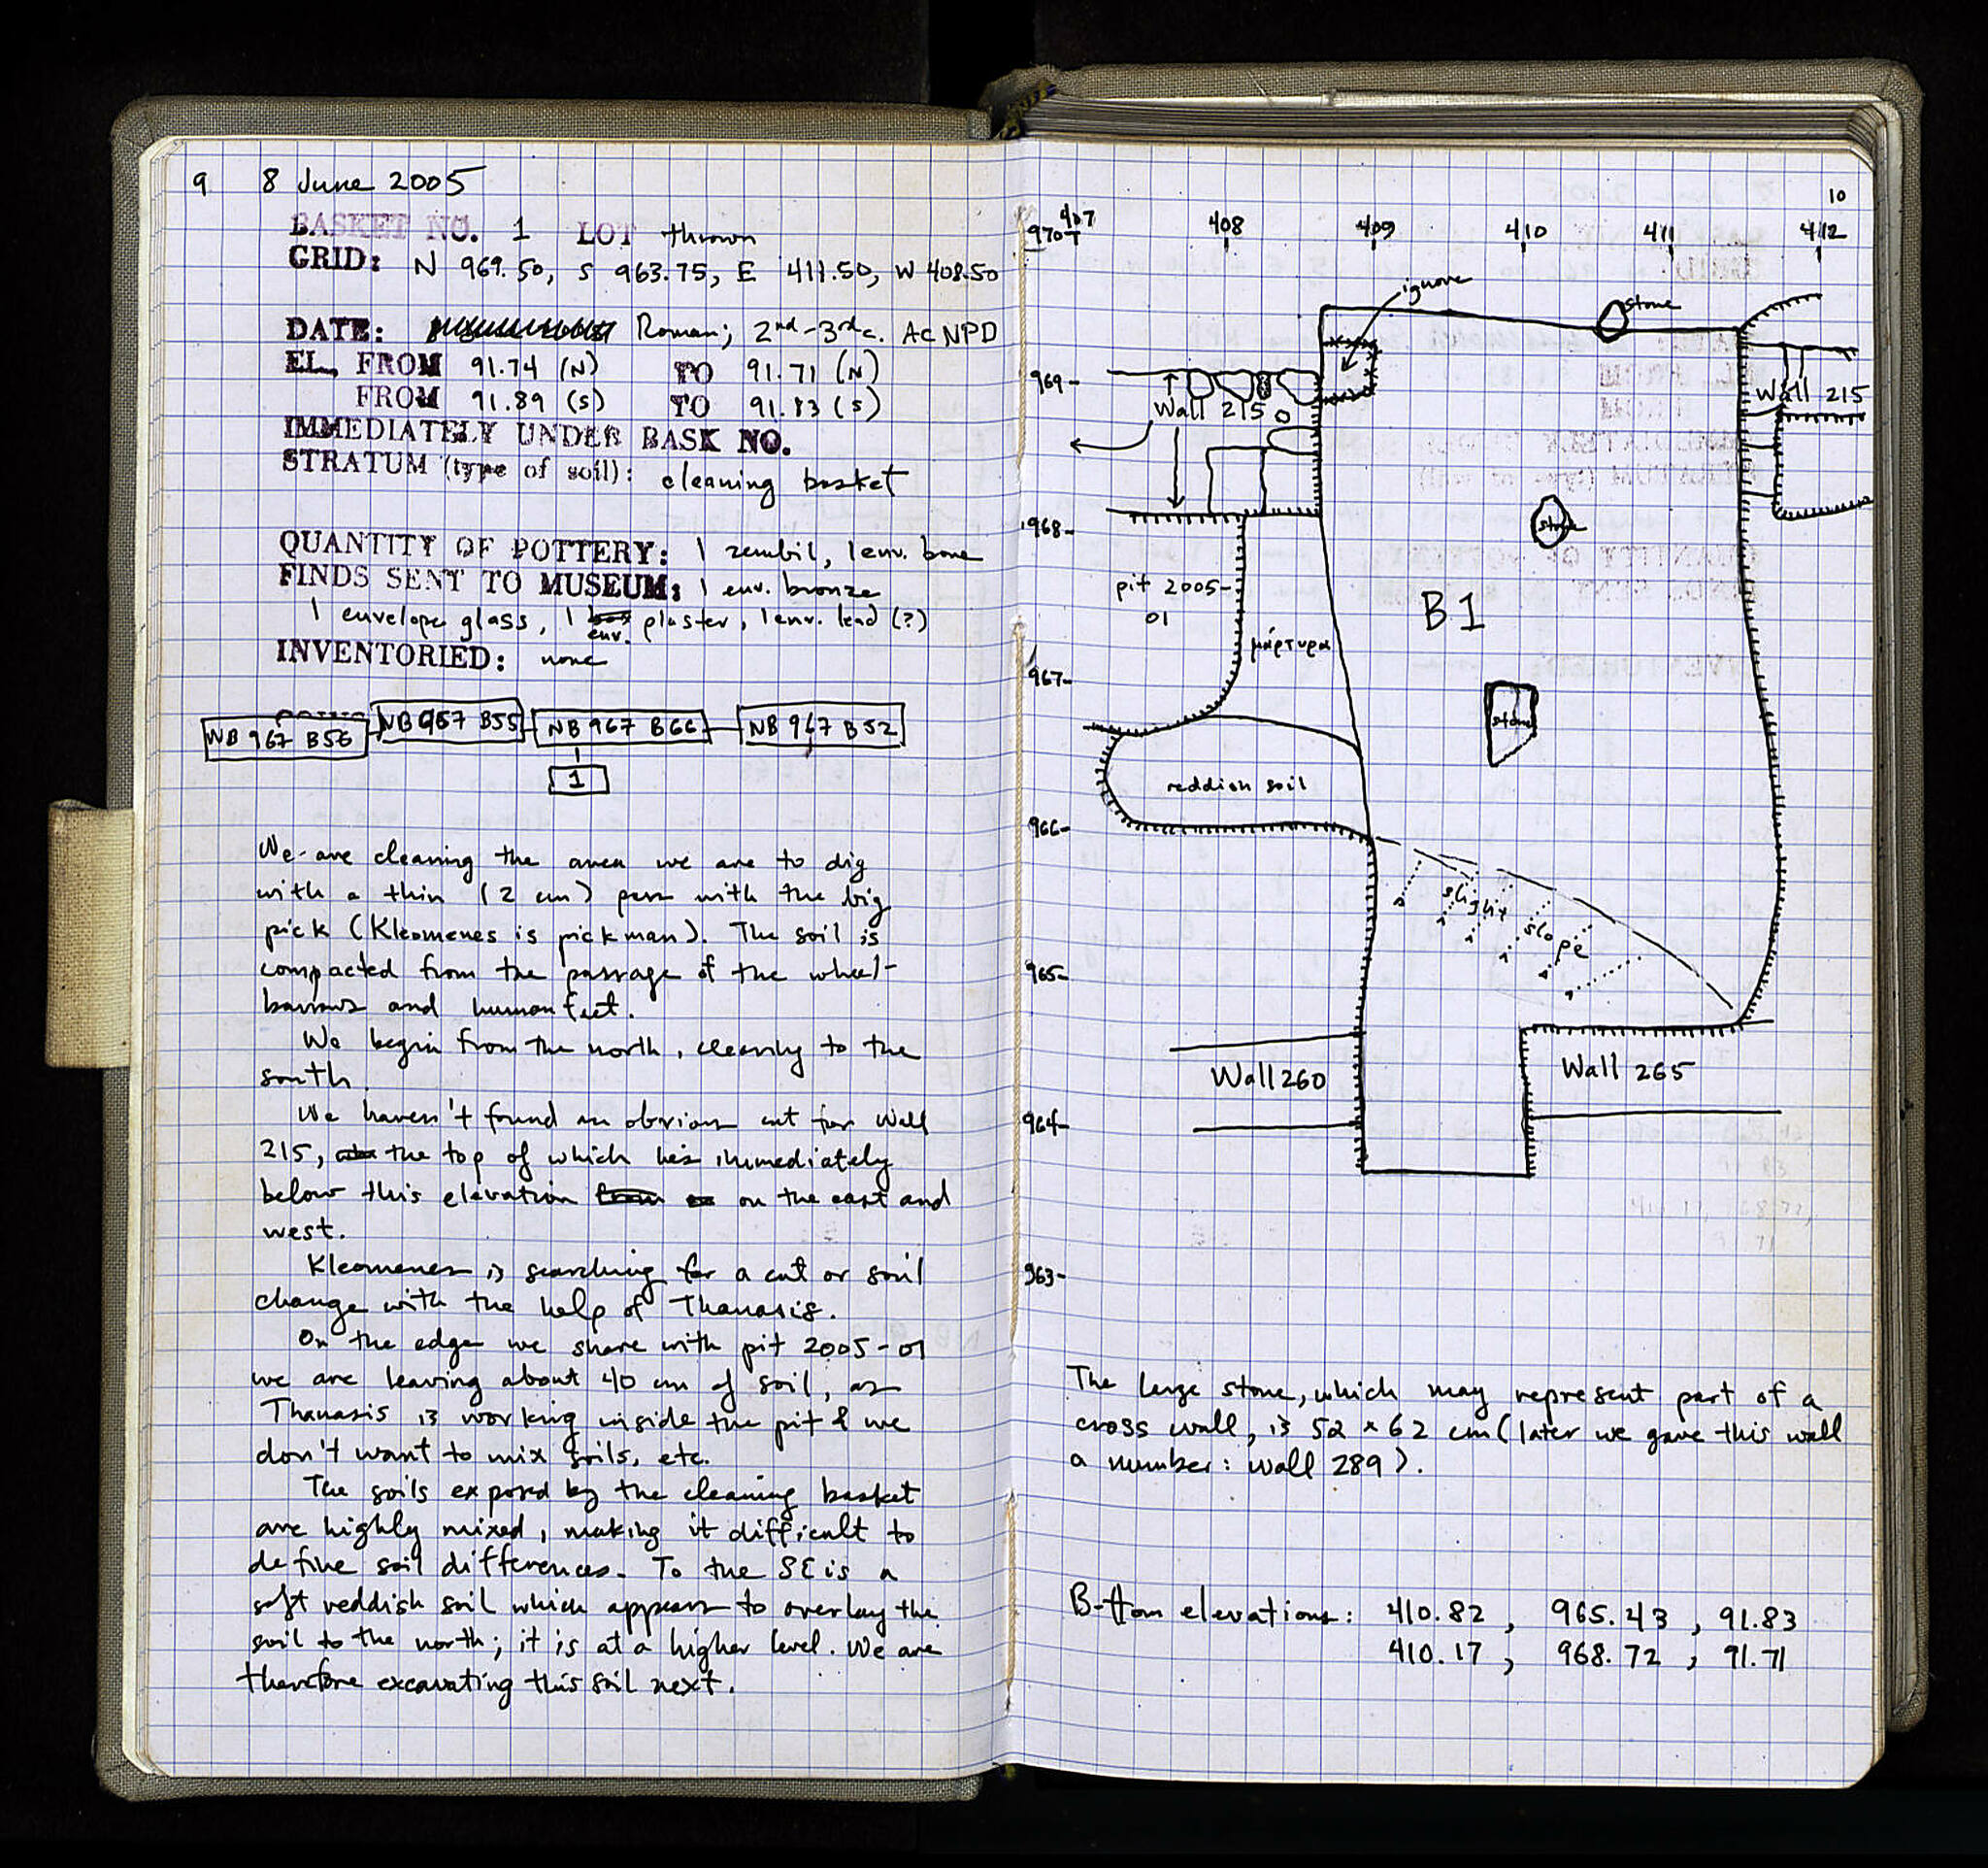 9 8 June 2005
BASKET NO. 1 LOT thrown
GRID: N 969.50, S 963.75, E 411.50, W 408.50
DATE: Roman; 2nd-3rd c. AC NPD
EL, FROM 91.74 (N) TO 91.71 (N)
FROM 91.89 (S) TO 91.83 (S)
IMMEDIATELY UNDER BASK NO.
STRATUM (type of soil): cleaning basket
QUANTITY OF POTTERY: 1 zembil, 1 env. bone
FINDS SENT TO MUSEUM: 1 env. bronze
1 envelope glass, 1 env. plaster, 1 env. lead (?)
INVENTORIED: none
NB 967 B56 NB 967 B55 NB 967 B66 NB 967 B52
1
We are cleaning the area we are to dig
with a thin (2 cm) pass with the big
pick (Kleomenes is pickman). The soil is
compacted from the passage of the wheel-
barrows and human feet.
We begin from the north, cleaning to the
south.
We haven't found an obvious cut for Wall
215, the top of which lies immediately
below this elevation on the east and
west.
Kleomenes is searching for a cut or soil
change with the help of Thanasis.
On the edge we share with pit 2005-01
we are leaving about 40 cm of soil, as
Thanasis is working inside the pit & we
don't want to mix soils, etc.
The soils exposed by the cleaning basket
are highly mixed, making it difficult to
define soil differences. To the SE is a
soft reddish soil which appears to overlay the
soil to the north; it is at a higher level. We are
therefore excavating this soil next.
10
407 408 409 410 411 412
970
ignore
stone
969
Wall 215
Wall 215
968
stone
pit 2005-
01
B1
μάρτυρα
967
stone
reddish soil
966
slight
slope
965
Wall 260
Wall 265
964
963
The large stone, which may represent part of a
cross wall, is 52 x 62 cm (later we gave this wall
a number: wall 289).
Bottom elevations: 410.82, 965.43, 91.83
410.17, 968.72, 91.71